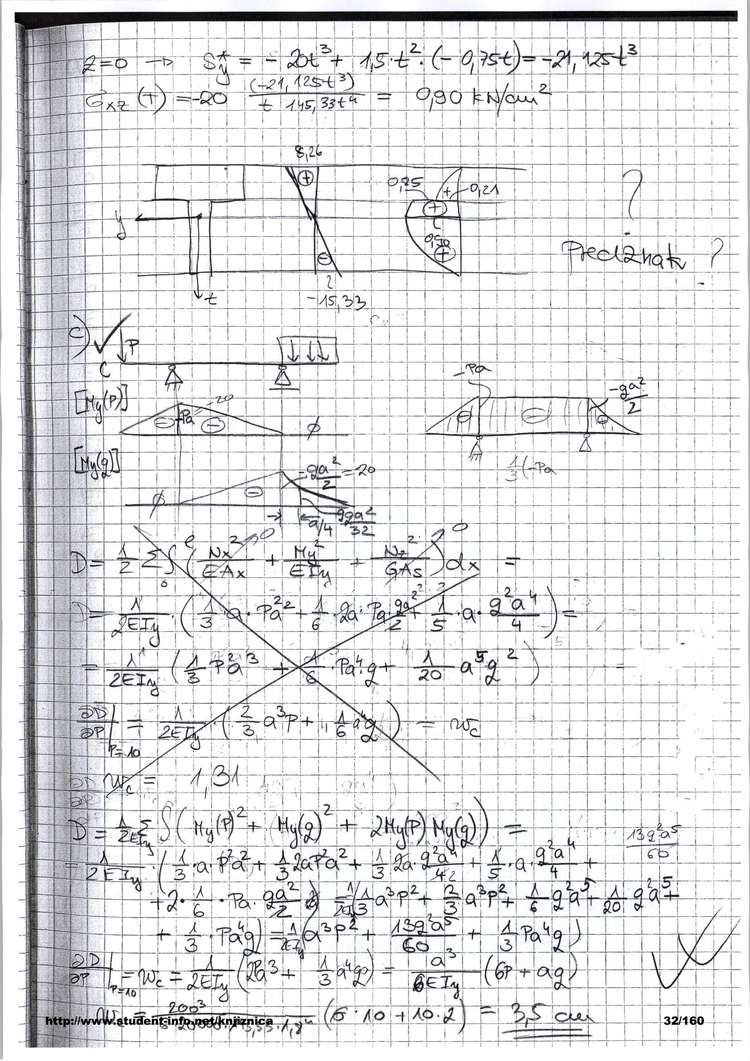 z=0 → Sy* = - 20t³ + 1,5·t²·(-0,75t) = -21,125t³
σxz (T) = -20 (-21,125t³) / t 145,33t⁴ = 0,90 kN/cm²
8,26
+
0,25
+
0,21
?
y
0,90
+
Predznak ?
t
-15,33
c) ✓ P
C
[My(P)]
Pa = -20
φ
-Pa
-qa²/2
1/3(-Pa
[My(q)]
φ
-qa²/2 = 20
a/4
9qa²/32
D = 1/2 Σ∫ (Nx²/EAx + My²/EIy + Nz²/GAs) dx =
D = 1/2EIy · (1/3 · a · Pa²² + 1/6 · 2a · Pa · qa²/2 + 1/5 · a · q²a⁴/4) =
= 1/2EIy (1/3 P²a³ + 1/6 · Pa⁴q + 1/20 a⁵q²)
∂D/∂P |P=10 = 1/2EIy · (2/3 a³P + 1/6 a⁴q) = wc
wc = 1,31
D = 1/2EIy Σ∫ (My(P)² + My(q)² + 2My(P) My(q)) =
13q²a⁵/60
= 1/2EIy · (1/3 · a · P²a² + 1/3 2aP²a² + 1/3 2a · q²a⁴/4 + 1/5 · a · q²a⁴/4 +
+ 2 · 1/6 · Pa · qa²/2 = 1/2EIy (1/3 a³P² + 2/3 a³P² + 1/6 q²a⁵ + 1/20 q²a⁵ +
+ 1/3 · Pa⁴q) = 1/2EIy (a³P² + 13q²a⁵/60 + 1/3 Pa⁴q)
∂D/∂P |P=10 = wc = 1/2EIy (2Pa³ + 1/3 a⁴q) = a³/6EIy (6P + aq)
wc = 200³ (6·10 + 10·2) = 3,5 cm
http://www.student-info.net/knjiznica
32/160